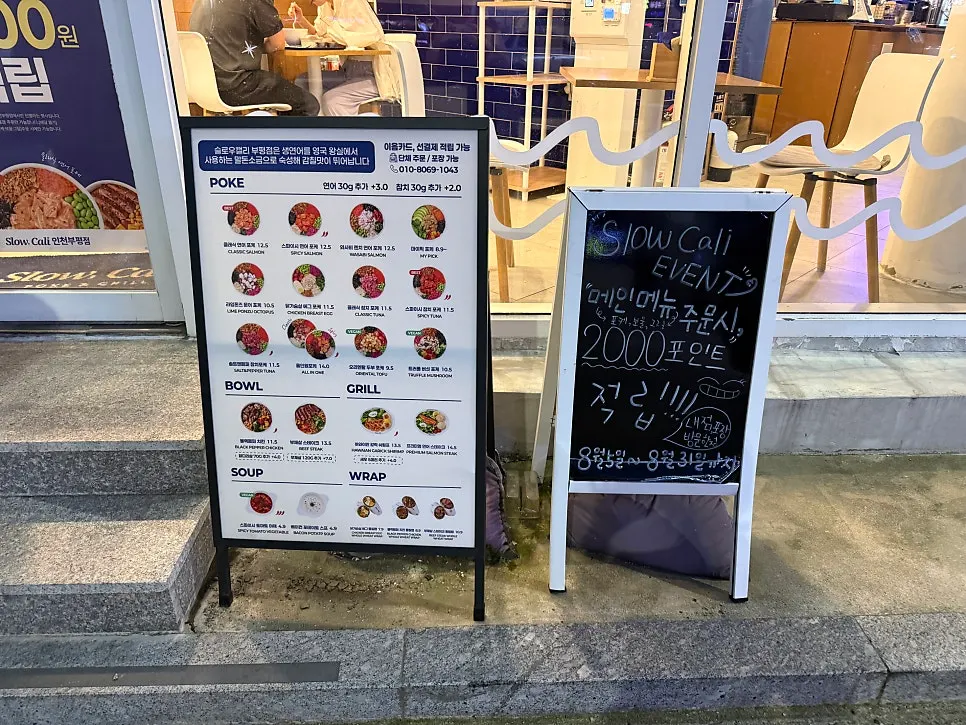 00원
립
Slow. Cali 인천부평점
Slow. Ca
슬로우캘리 부평점은 생연어를 영국 왕실에서
사용하는 말돈소금으로 숙성해 감칠맛이 뛰어납니다
이음카드, 선결제 적립 가능
단체 주문 / 포장 가능
010-8069-1043
POKE
연어 30g 추가 +3.0 참치 30g 추가 +2.0
BEST
클래식 연어 포케 12.5
CLASSIC SALMON
스파이시 연어 포케 12.5
SPICY SALMON
와사비 펜치 연어 포케 12.5
WASABI SALMON
마이픽 포케 8.9~
MY PICK
라임폰즈 문어 포케 10.5
LIME PONZU OCTOPUS
닭가슴살 에그 포케 11.5
CHICKEN BREAST EGG
클래식 참치 포케 11.5
CLASSIC TUNA
BEST
스파이시 참치 포케 11.5
SPICY TUNA
솔트앤페퍼 참치포케 11.5
SALT&PEPPER TUNA
올인원포케 14.0
ALL IN ONE
VEGAN
오리엔탈 두부 포케 9.5
ORIENTAL TOFU
VEGAN
트러플 버섯 포케 10.5
TRUFFLE MUSHROOM
BOWL
GRILL
블랙페퍼 치킨 11.5
BLACK PEPPER CHICKEN
부채살 스테이크 13.5
BEEF STEAK
하와이안 갈릭 쉬림프 13.5
HAWAIIAN GARLIC SHRIMP
프리미엄 연어 스테이크 14.5
PREMIUM SALMON STEAK
SOUP
WRAP
VEGAN
스파이시 토마토 야채 4.9
SPICY TOMATO VEGETABLE
베이컨 포테이토 스프 4.9
BACON POTATO SOUP
CHICKEN BREAST EGG
WHOLE WHEAT WRAP
BLACK PEPPER CHICKEN
WHOLE WHEAT WRAP
BEEF STEAK WHOLE
WHEAT WRAP
Slow Cali
EVENT
메인메뉴 주문시
2000포인트
적립!!!!
내점,포장
8월5일~8월31일까지